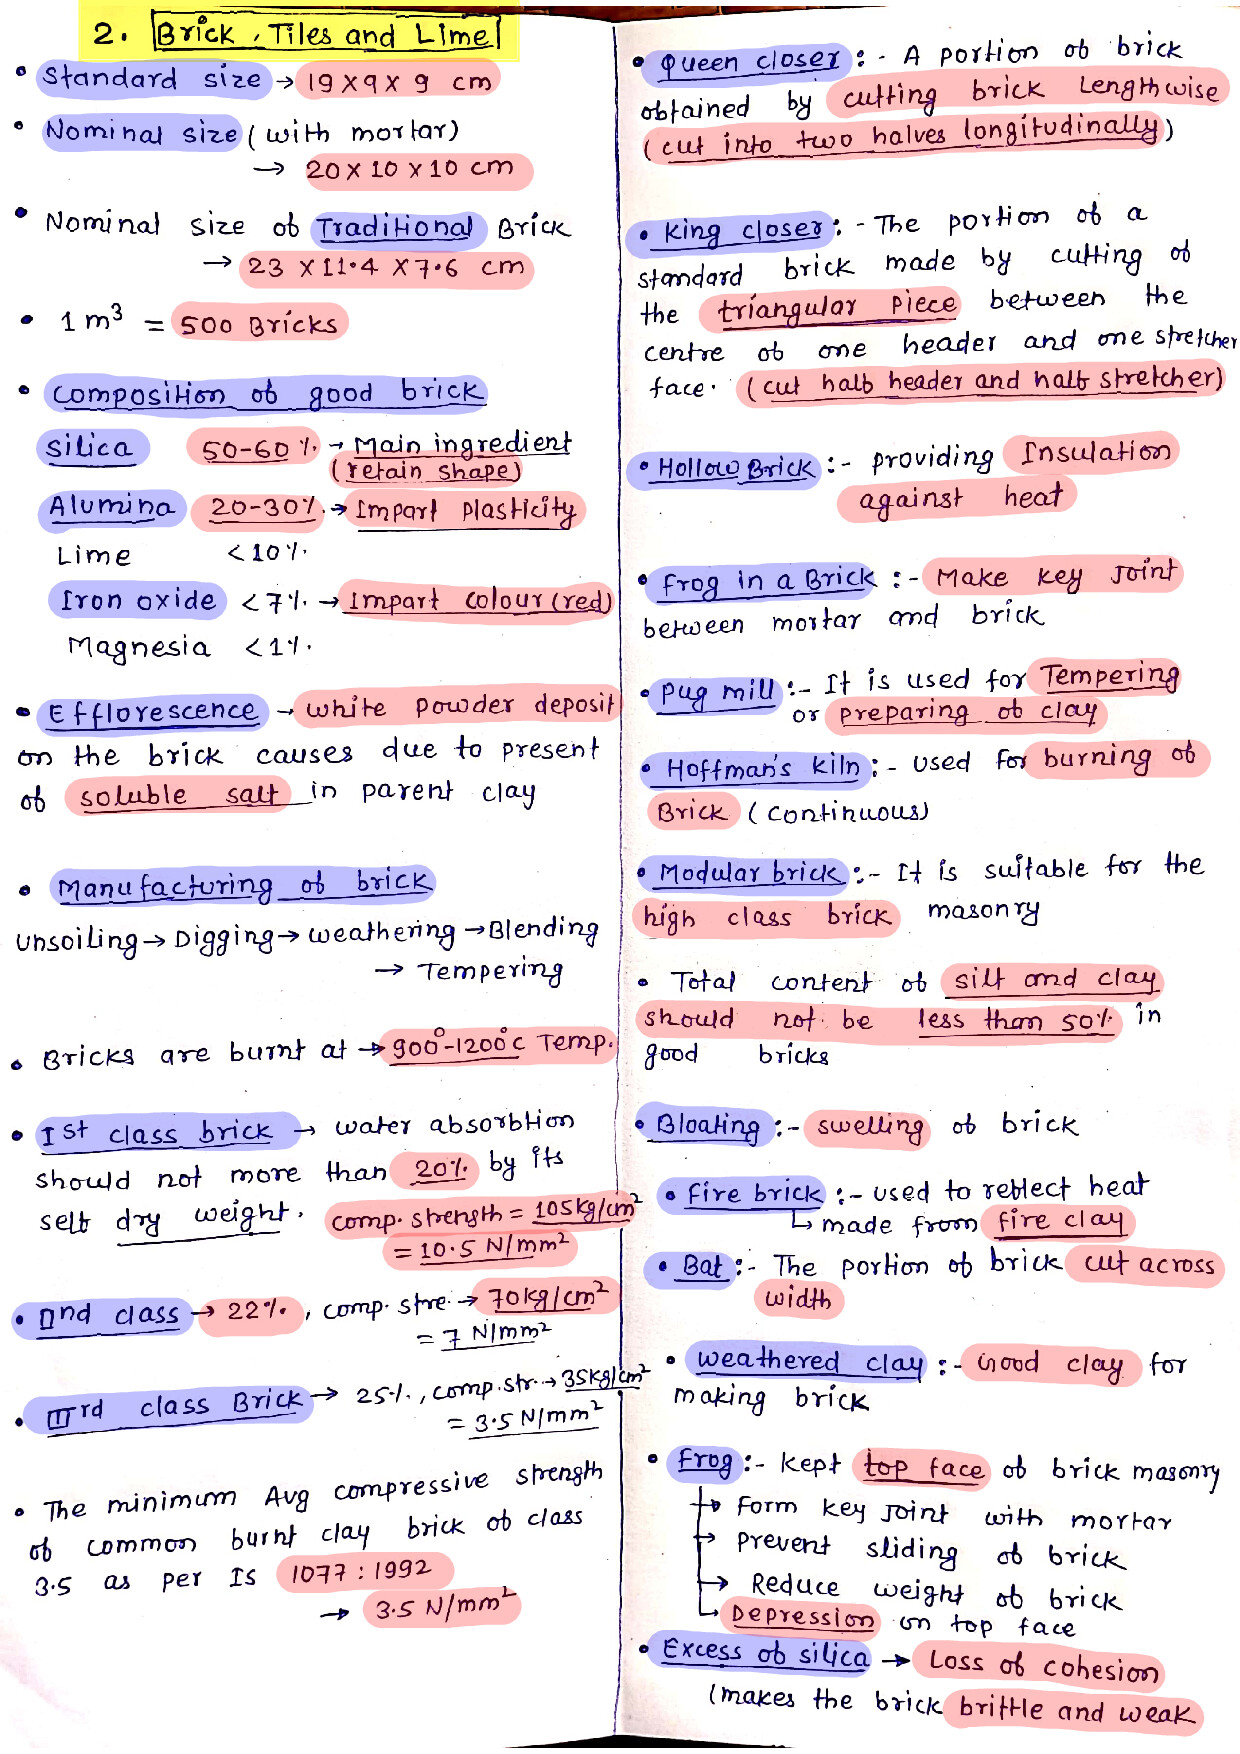 2. Brick, Tiles and Lime
• Standard size → 19 x 9 x 9 cm
• Nominal size (with mortar)
→ 20 x 10 x 10 cm
• Nominal size of Traditional Brick
→ 23 x 11.4 x 7.6 cm
• 1 m³ = 500 Bricks
• composition of good brick
silica 50-60 % → Main ingredient
(retain shape)
Alumina 20-30% → Impart plasticity
Lime <10%
Iron oxide <7% → Impart colour (red)
Magnesia <1%
• Efflorescence → white powder deposit
on the brick causes due to present
of soluble salt in parent clay
• Manufacturing of brick
Unsoiling → Digging → weathering → Blending
→ Tempering
• Bricks are burnt at → 900°-1200°c Temp.
• Ist class brick → water absorbtion
should not more than 20% by its
self dry weight. comp. strength = 105kg/cm²
= 10.5 N/mm²
• IInd class → 22%, comp. stre. → 70kg/cm²
= 7 N/mm²
• IIIrd class Brick → 25%, comp. str. → 35kg/cm²
= 3.5 N/mm²
• The minimum Avg compressive strength
of common burnt clay brick of class
3.5 as per Is 1077 : 1992
→ 3.5 N/mm²
• Queen closer :- A portion of brick
obtained by cutting brick Lengthwise
(cut into two halves longitudinally)
• King closer :- The portion of a
standard brick made by cutting of
the triangular piece between the
centre of one header and one stretcher
face. (cut half header and half stretcher)
• Hollow Brick :- providing Insulation
against heat
• frog in a Brick :- Make key Joint
between mortar and brick
• Pug mill :- It is used for Tempering
or preparing of clay
• Hoffman's kiln :- used for burning of
Brick (continuous)
• Modular brick :- It is suitable for the
high class brick masonry
• Total content of silt and clay
should not be less than 50% in
good bricks
• Bloating :- swelling of brick
• fire brick :- used to reflect heat
↳ made from fire clay
• Bat :- The portion of brick cut across
width
• weathered clay :- Good clay for
making brick
• frog :- kept top face of brick masonry
→ Form key Joint with mortar
→ prevent sliding of brick
→ Reduce weight of brick
↳ Depression on top face
• Excess of silica → Loss of cohesion
(makes the brick brittle and weak